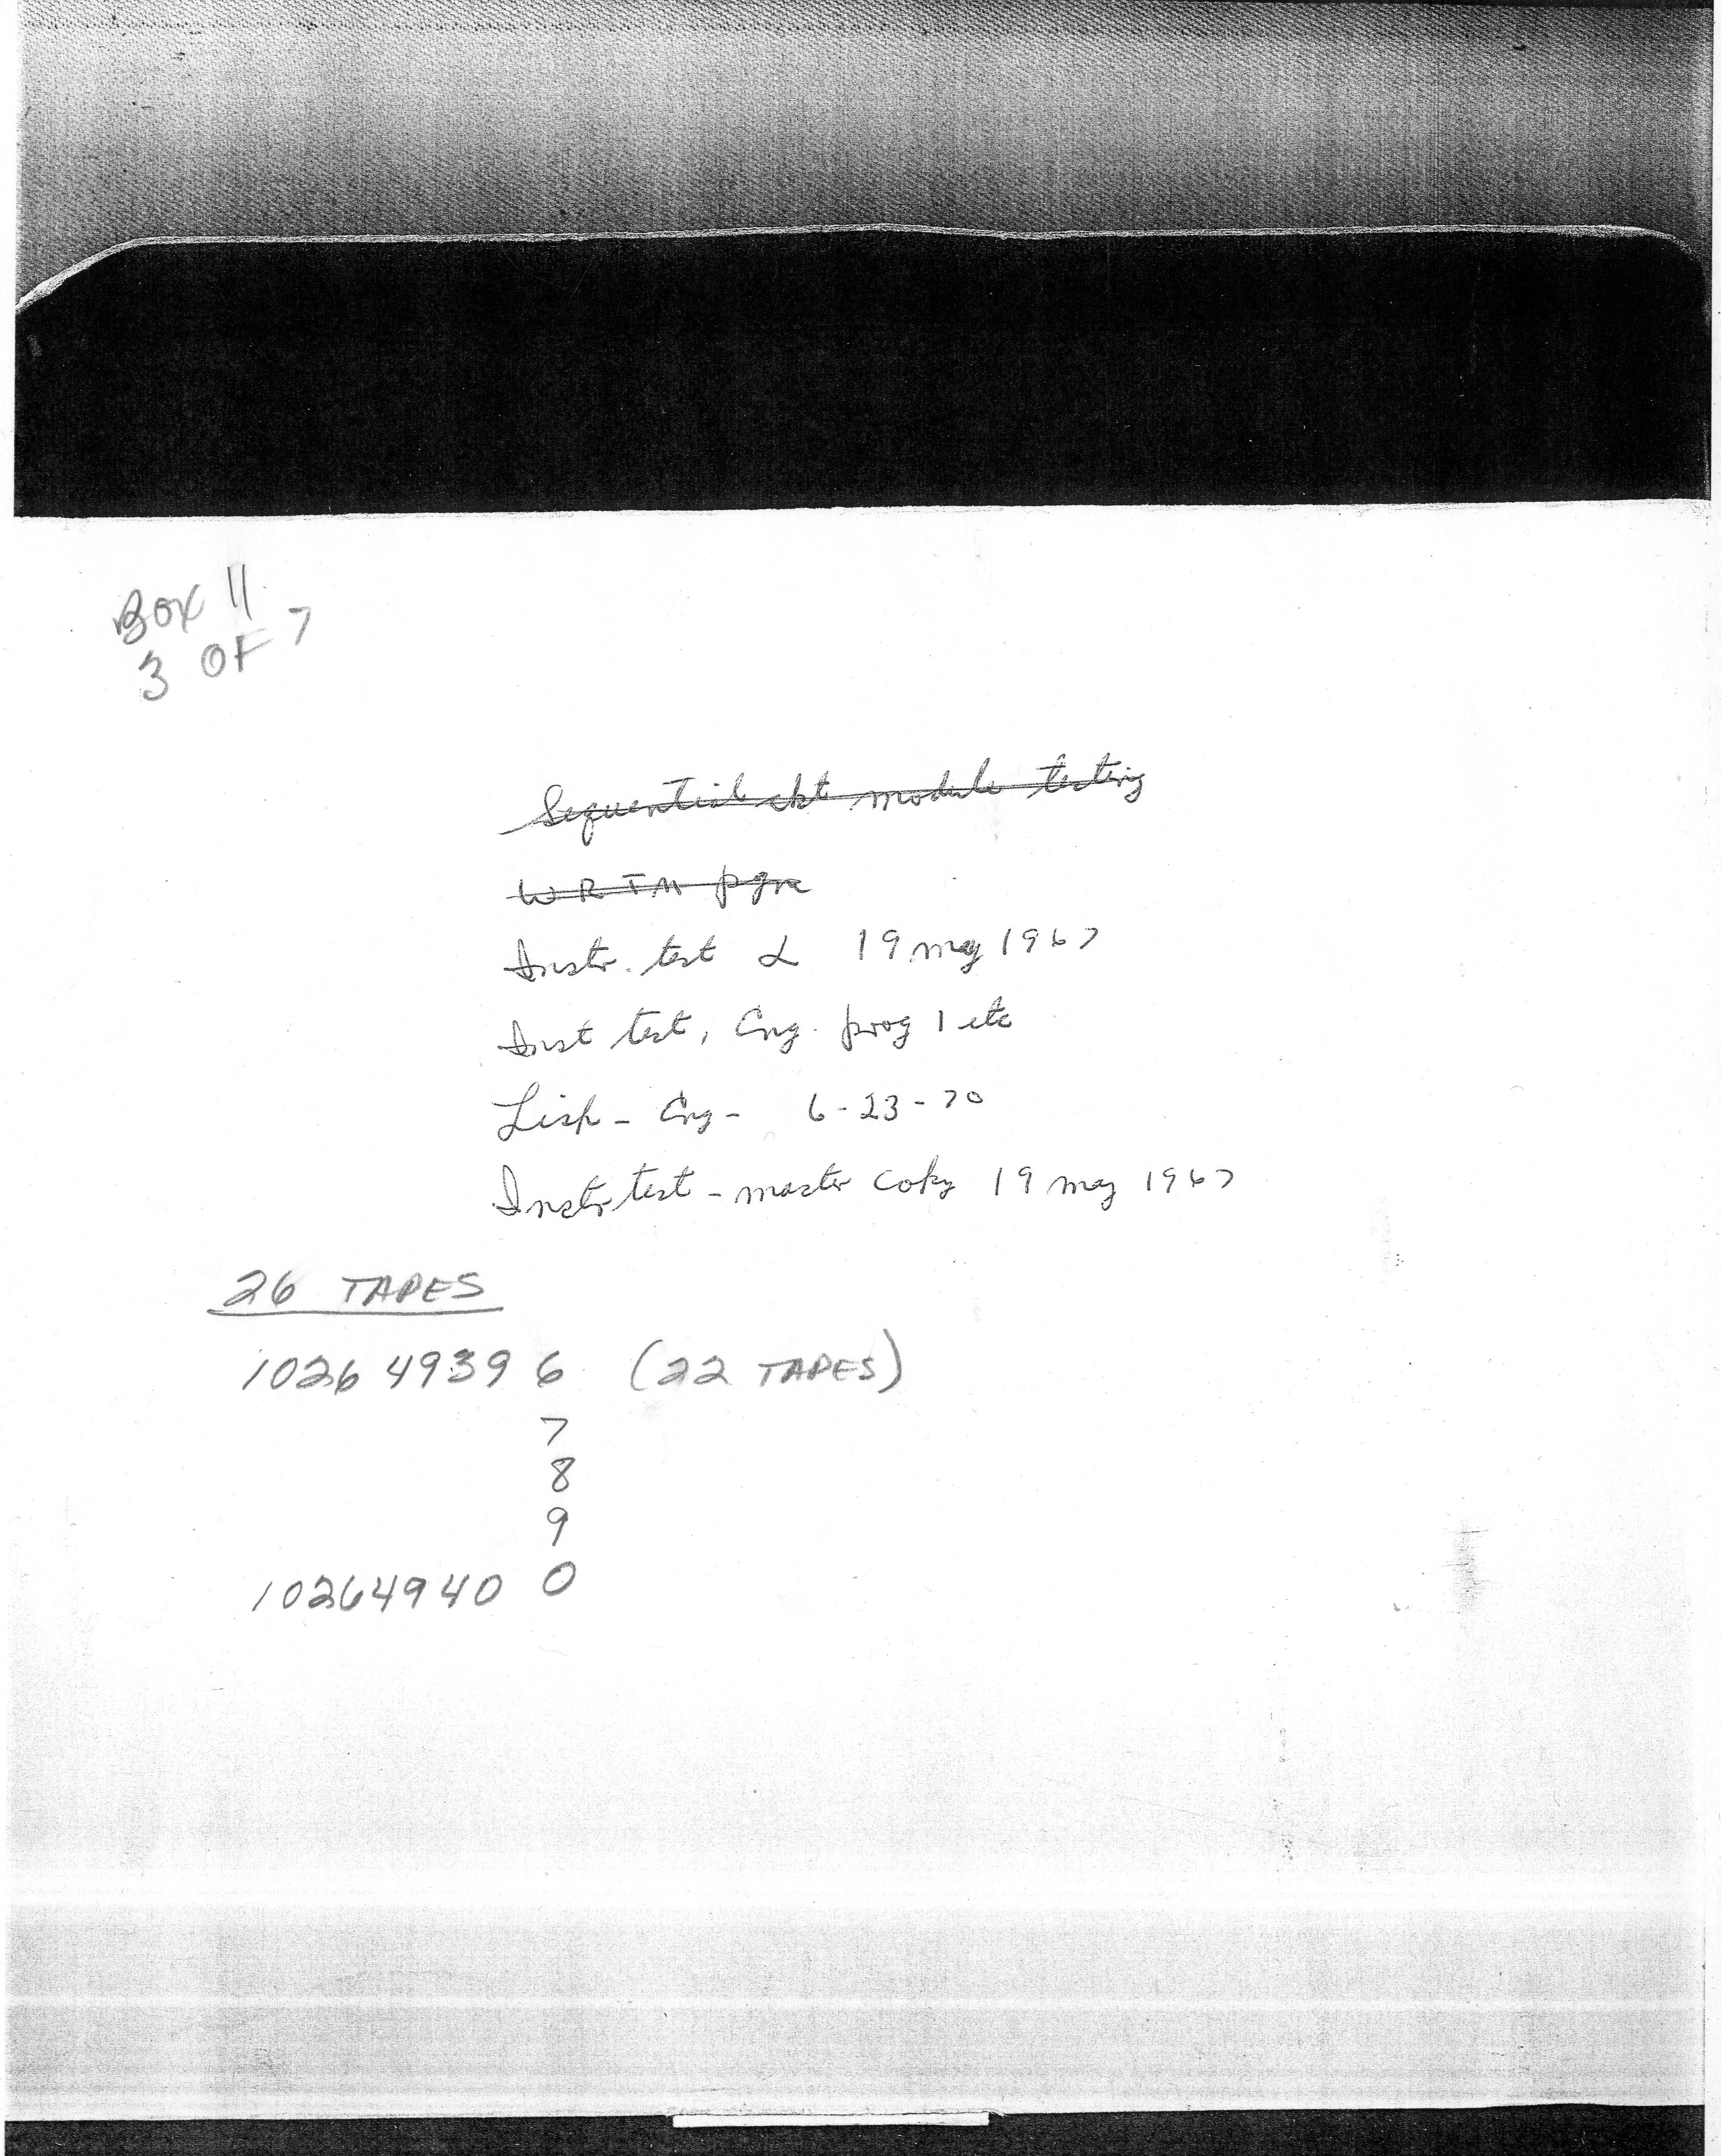 Box 11
3 OF 7
Sequential ckt module testing
WRTM pgm
Instr. test L 19 may 1967
Inst test, Eng. prog 1 etc
Lisp - Eng - 6-23-70
Instr test - master copy 19 may 1967
26 TAPES
1026 4939 6 (22 TAPES)
7
8
9
10264940 0